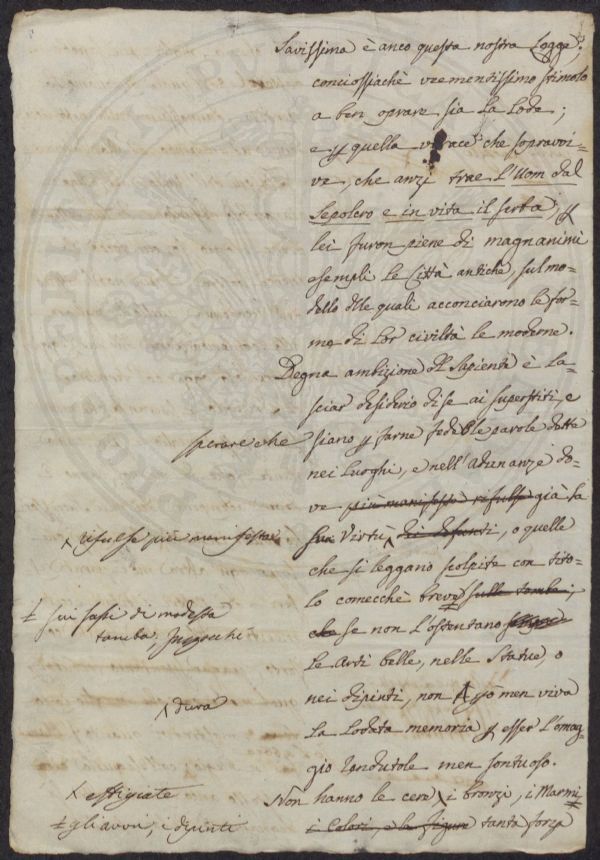 Savissima è anco questa nostra Legge;
conciossiachè veementissimo stimolo
a ben oprare sia la Lode;
e p quella verace che sopravvi-
ve, che anzi trae l'Uom dal
Sepolcro e in vita il serba, p
lei furon piene di magnanimi
esempli le Città antiche, sul mo-
dello dlle quali acconciarono le for-
me di lor civiltà le moderne.
Degna ambizione dl Sapiente è la-
sciar desiderio di se ai superstiti, e
sperare che
siano p farne fede le parole dette
nei luoghi, e nell'adunanze do-
ve più manifesta rifulse già la
sua Virtù dei defunti, o quelle
risulse più manifesta
che si leggano scolpite con tito-
lo comecchè breve sulle tombe;
sui sassi di modesta
tomba,
che se non l'ostentano
le Arti belle, nelle Statue, o
nei dipinti, non p ciò men viva
dura
la lodata memoria p esser l'omag-
gio rendutole men sontuoso.
Non hanno le cere i bronzi, i Marmi
effigiate
gli avvi, i dipinti
i Colori, e le figure tanta forza